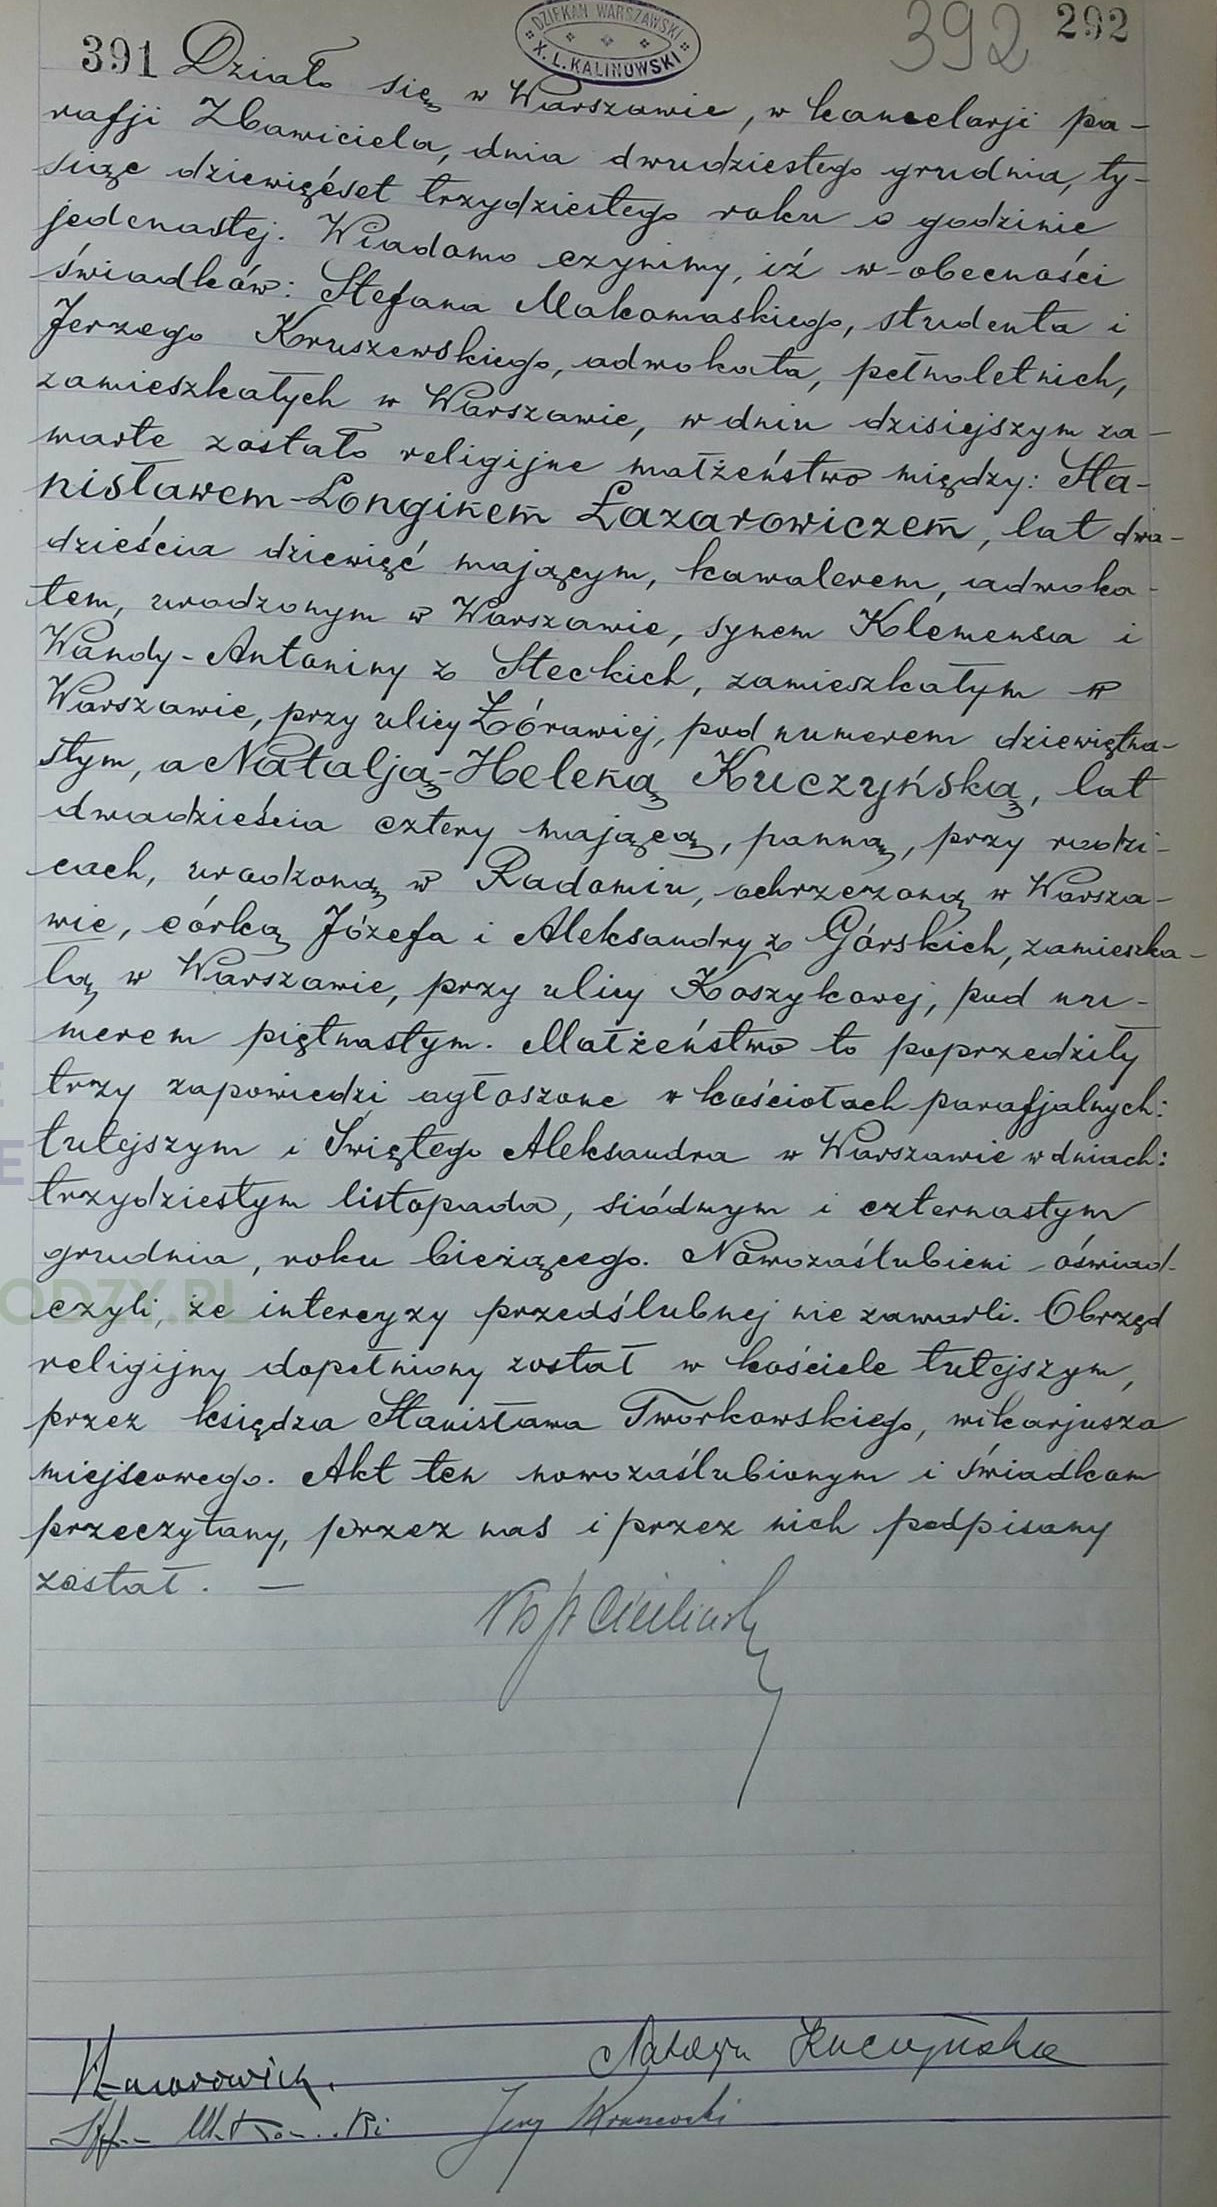 DZIEKAN WARSZAWSKI
X. L. KALINOWSKI
392 292
391 Działo się w Warszawie, w kancelarji pa-
rafji Zbawiciela, dnia dwudziestego grudnia, ty-
siąc dziewięćset trzydziestego roku o godzinie
jedenastej. Wiadomo czynimy, iż w obecności
świadków: Stefana Makomaskiego, studenta i
Jerzego Kruszewskiego, adwokata, pełnoletnich,
zamieszkałych w Warszawie, w dniu dzisiejszym za-
warte zostało religijne małżeństwo między: Sta-
nisławem-Longinem Łazarowiczem, lat dwa-
dzieścia dziewięć mającym, kawalerem, adwoka-
tem, urodzonym w Warszawie, synem Klemensa i
Wandy-Antoniny z Steckich, zamieszkałym w
Warszawie, przy ulicy Żórawiej, pod numerem dziewiętna-
stym, a Natalją-Heleną Kuczyńską, lat
dwadzieścia cztery mającą, panną, przy rodzi-
cach, urodzoną w Radomiu, ochrzczoną w Warsza-
wie, córką Józefa i Aleksandry z Górskich, zamieszka-
łą w Warszawie, przy ulicy Koszykowej, pod nu-
merem piętnastym. Małżeństwo to poprzedziły
trzy zapowiedzi ogłoszone w kościołach parafjalnych:
tutejszym i Świętego Aleksandra w Warszawie w dniach:
trzydziestym listopada, siódmym i czternastym
grudnia, roku bieżącego. Nowozaślubieni oświad-
czyli, że intercyzy przedślubnej nie zawarli. Obrzęd
religijny dopełniony został w kościele tutejszym,
przez księdza Stanisława Tworkowskiego, wikarjusza
miejscowego. Akt ten nowozaślubionym i świadkom
przeczytany, przez nas i przez nich podpisany
został. —
Natalja Kuczyńska
Łazarowicz.
Jerzy Kruszewski
ODZY.PL